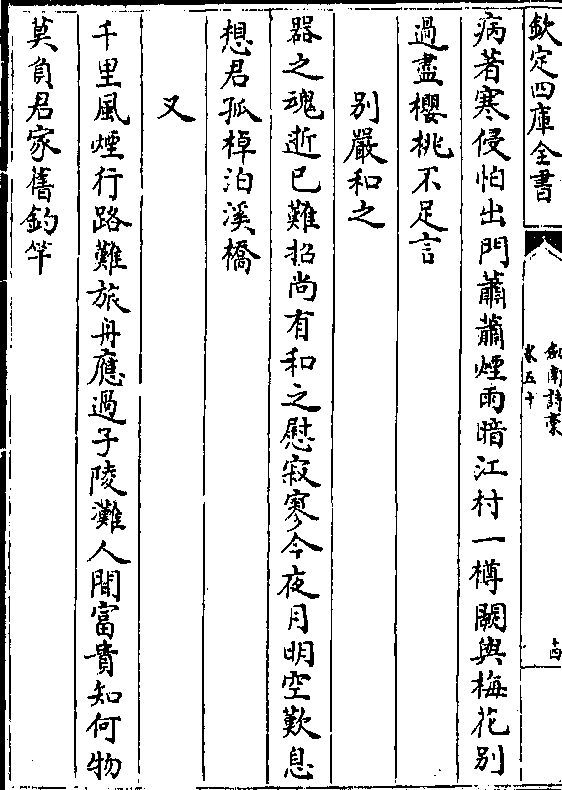 欽定四庫全書
劍南詩稾
卷五十
病著寒侵怕出門蕭蕭煙雨暗江村一樽闕與梅花别
過盡櫻桃不足言
别嚴和之
器之魂逝已難招尚有和之慰寂寥今夜月明空歎息
想君孤棹泊溪橋
又
千里風煙行路難旅舟應過子陵灘人間富貴知何物
莫負君家舊釣竿